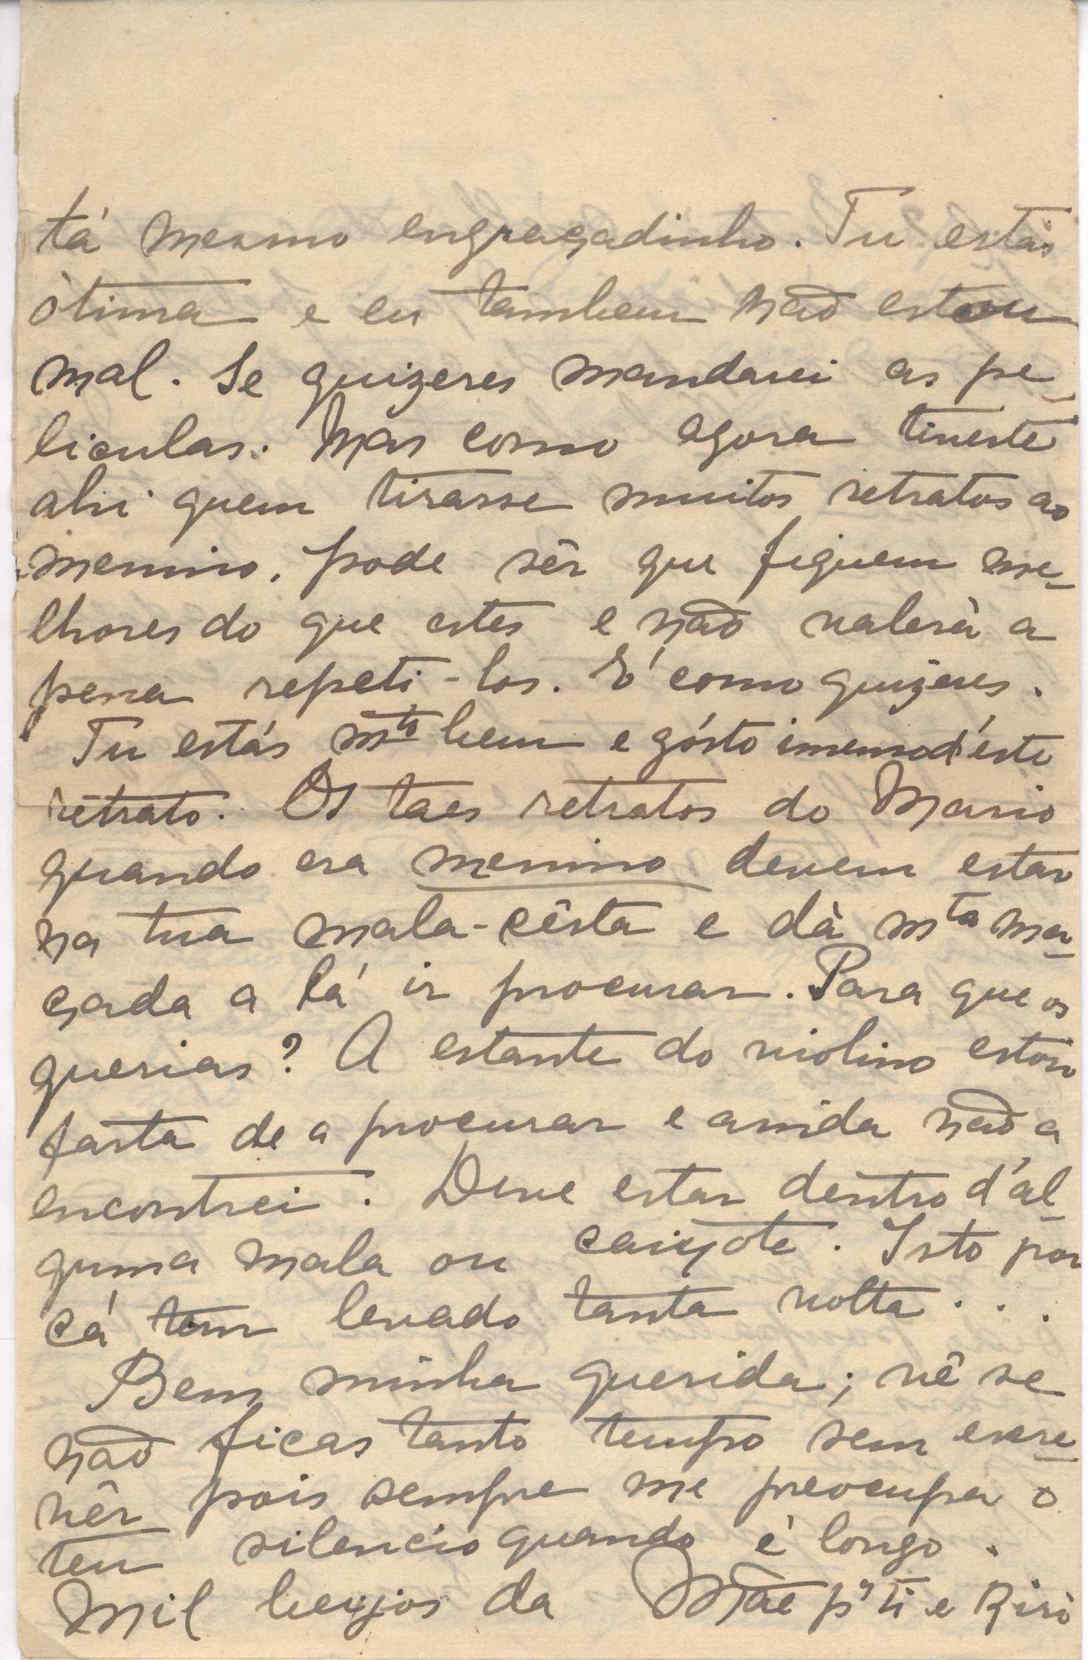 tá mesmo engraçadinho. Tu estás
òtima e eu tambem não estou
mal. Se quizeres mandarei as pe-
liculas. Mas como agora tiveste
ahi quem tirasse muitos retratos ao
menino, pode sêr que fiquem me-
lhores do que estes e não valerà a
pena repeti-los. É como quizeres.
Tu estás mto bem e gósto imenso d'éste
retrato. Os taes retratos do Mario
quando era menino devem estar
na tua mala-cêsta e dà mta ma-
çada a lá ir procurar. Para que os
querias? A estante do violino estou
farta de a procurar e ainda não a
encontrei. Deve estar dentro d'al-
guma mala ou caixote. Isto por
cá tem levado tanta volta...
Bem minha querida; vê se
não ficas tanto tempo sem escre-
vêr pois sempre me preocupa o
teu silencio quando è longo.
Mil beijos da Mãe pª ti e Riri